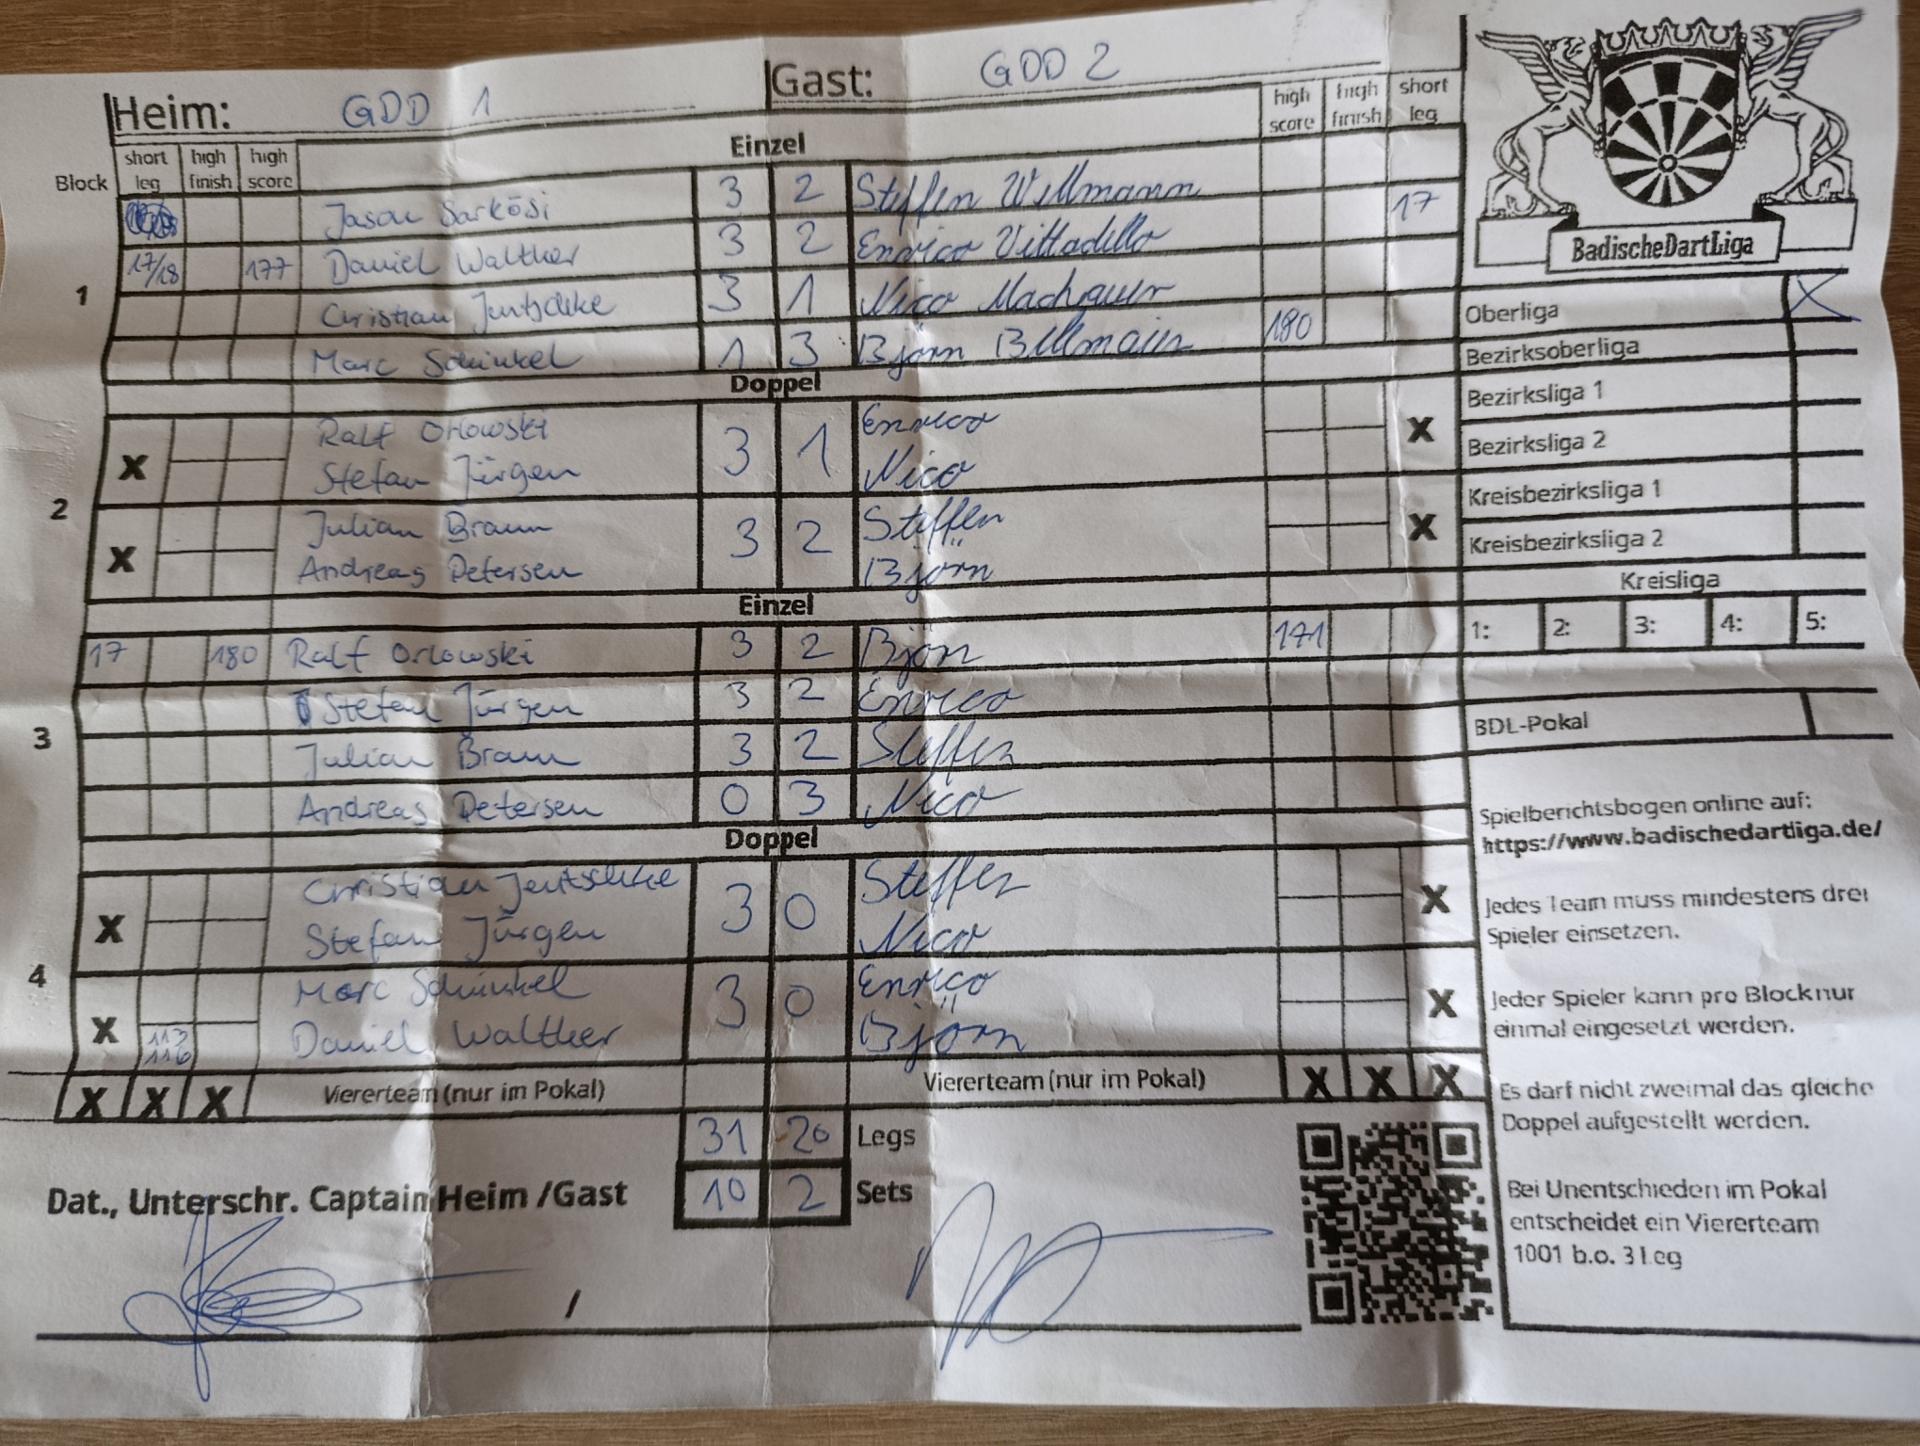 Heim: GDD 1 Gast: GDD 2
high score high finish short leg
Block short leg high finish high score Einzel
1
Jason Sarkösi 3 2 Steffen Willmann
17/18 177 Daniel Walther 3 2 Enrico Vittadello 17
Christian Jentschke 3 1 Nico Machauer
Marc Schinkel 1 3 Björn Billmaier 180
Doppel
2
X Ralf Orlowski 3 1 Enrico X
Stefan Jürgen Nico
X Julian Braun 3 2 Steffen X
Andreas Petersen Björn
Einzel
3
17 180 Ralf Orlowski 3 2 Björn 171
Stefan Jürgen 3 2 Enrico
Julian Braun 3 2 Steffen
Andreas Petersen 0 3 Nico
Doppel
4
X Christian Jentschke 3 0 Steffen X
Stefan Jürgen Nico
X Marc Schinkel 3 0 Enrico X
113
116 Daniel Walther Björn
X X X Viererteam (nur im Pokal) Viererteam (nur im Pokal) X X X
31 20 Legs
10 2 Sets
Dat., Unterschr. Captain Heim /Gast
/
BadischeDartLiga
Oberliga X
Bezirksoberliga
Bezirksliga 1
Bezirksliga 2
Kreisbezirksliga 1
Kreisbezirksliga 2
Kreisliga
1: 2: 3: 4: 5:
BDL-Pokal
Spielberichtsbogen online auf:
https://www.badischedartliga.de/
Jedes Team muss mindestens drei
Spieler einsetzen.
Jeder Spieler kann pro Block nur
einmal eingesetzt werden.
Es darf nicht zweimal das gleiche
Doppel aufgestellt werden.
Bei Unentschieden im Pokal
entscheidet ein Viererteam
1001 b.o. 3 Leg